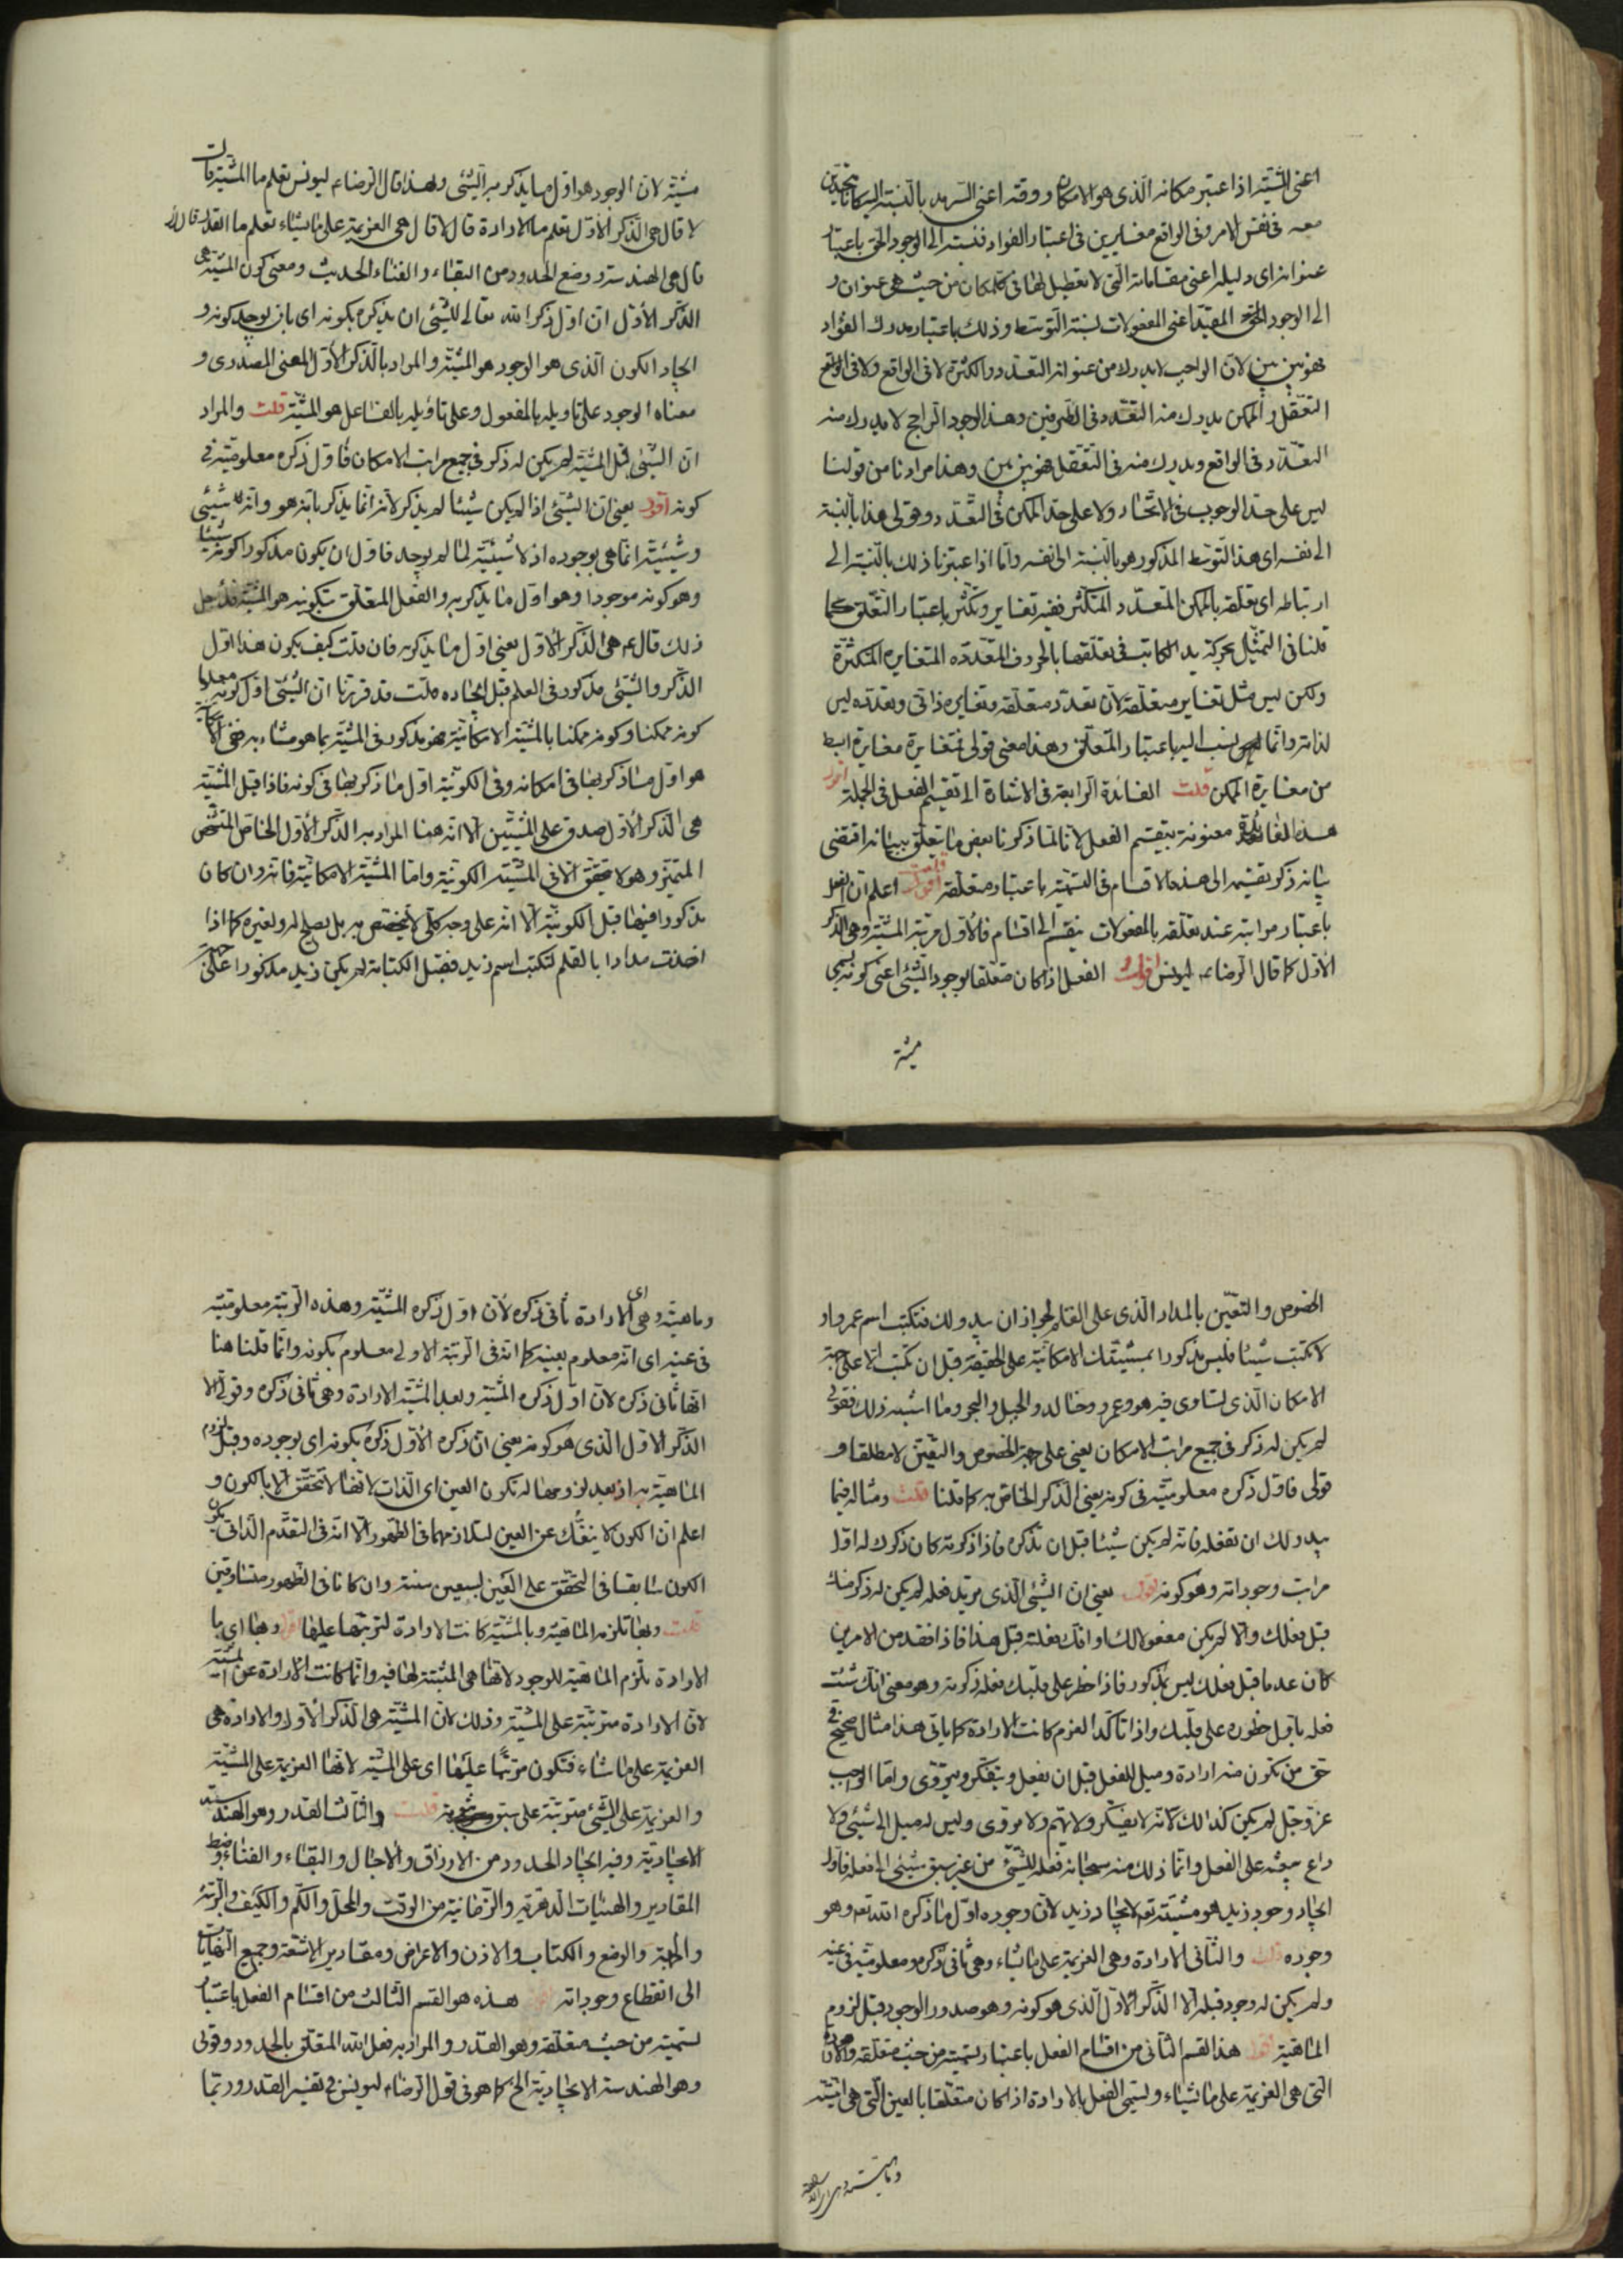 اعنى المشيّة اذا اعتبر مكانه الّذى هو الامكان ووقته اعنى السّرمد بالنّسبة اليه كانا متّحدين
معه فى نفس الامر وفى الواقع مغايرين فى اعتبار الفؤاد فنسبته الى الوجود الحق باعتبار
عنوانه اى دليله اعنى مقاماته الّتى لا تعطيل لها فى كل مكان من حيث هى عنوان و
الى الوجود المقيّد اعنى المفعولات نسبة التّوسّط وذلك باعتبار مدرك الفؤاد
فهو بين بين لانّ الواجب لا يدرك من عنوانه التّعدّد والكثرة لا فى الواقع ولا فى
التّعقّل والممكن يدرك منه التعدّد فى الطّرفين وهذا الوجود الرّاجح لا يدرك منه
التعدّد فى الواقع ويدرك منه فى التّعقّل فهو بين بين وهذا مرادنا من قولنا
ليس على حدّ الوجوب فى الاتّحاد ولا على حدّ الممكن فى التّعدّد وقولى هذا بالنّسبة
الى نفسه اى هذا التّوسّط المذكور هو بالنّسبة الى نفسه وامّا اذا اعتبرنا ذلك بالنّسبة الى
ارتباطه اى تعلّقه بالممكن المتعدّد المتكثّر ففيه تغاير وتكثّر باعتبار التّعلّق كما
قلنا فى التمثيل بحركة يد الكاتب فى تعلّقها بالحروف المتعدّدة المتغايرة المتكثّرة
ولكن ليس مثل تغاير متعلّقه لانّ تعدّد متعلّقه وتغايره ذاتى وتعدّده ليس
لذاته وانّما نسب اليه باعتبار المتعلّق وهذا معنى قولى فتغايره مغايرة ابسط
من مغايرة الممكن قلت الفائدة الرّابعة فى الاشارة الى تقسيم الفعل فى الجملة اقول
هذه الفائدة معنونة بتقسيم الفعل لانّا لمّا ذكرنا بعض ما يتعلّق ببيانه اقتضى
بيانه ذكر تقسيمه الى هذه الاقسام فى التّسمية باعتبار متعلّقه قلت اعلم انّ الفعل
باعتبار مراتبه عند تعلّقه بالمفعولات ينقسم الى اقسام فالاوّل مرتبة المشيّة وهى الذّكر
الاوّل كما قال الرّضاء ليونس اقول الفعل اذا كان متعلّقا بوجود الشّئ اعنى كونه يسمى
مشيّة
مشيّة لانّ الوجود هو اوّل ما يذكر به الشّئ ولهذا قال الرّضاء ليونس تعلم ما المشيّة قال
لا قال هى الذّكر الاوّل تعلم ما الارادة قال لا قال هى العزيمة على ما يشاء تعلم ما القدر قال لا
قال هى الهندسة ووضع الحدود من البقاء والفناء الحديث ومعنى كون المشيّة هى
الذّكر الاوّل انّ اوّل ذكر الله تعالى للشّئ ان يذكره بكونه اى بان يوجد كونه و
ايجاد الكون الّذى هو الوجود هو المشيّة والمراد بالذّكر الاوّل المعنى المصدرى و
معناه الوجود على تاويله بالمفعول وعلى تاويله بالفاعل هو المشيّة قلت والمراد
انّ الشّئ قبل المشيّة لم يكن له ذكر فى جميع مراتب الامكان فاوّل ذكره معلوميّته فى
كونه اقول يعنى انّ الشّئ اذا لم يكن شيئا لم يذكر لانّه انّما يذكر بانّه هو وانّه شئ
وشيئيّته انّما هى بوجوده اذ لا شيئيّة لما لم يوجد فاوّل ان يكون مذكورا كونه شيئا
وهو كونه موجودا وهو اوّل ما يذكر به والفعل المتعلّق بتكوينه هو المشيّة فلاجل
ذلك قال ع هى الذّكر الاوّل يعنى اوّل ما يذكر به فان قلت كيف يكون هذا اوّل
الذّكر والشّئ مذكور فى العلم قبل ايجاده قلت قد قررنا انّ الشّئ اوّل كونه معلوما
كونه ممكنا وكونه ممكنا بالمشيّة الامكانيّة فهو مذكور فى المشيّة بما هو مشاء به
هو اوّل ما ذكر بها فى امكانه وفى الكونيّة اوّل ما ذكر بها فى كونه فاذا قيل المشيّة
هى الذّكر الاوّل صدق على المشيّتين الّا انّه هنا المراد به الذّكر الاوّل الخاصّ المشخّص
المتميّز وهو لا يتحقّق الّا فى المشيّة الكونيّة وامّا المشيّة الامكانيّة فانّه وان كان
مذكورا فيها قبل الكونيّة الّا انّه على وجه كلّى لا يختصّ به بل يصلح له ولغيره كما اذا
اخذت مدادا بالقلم لتكتب اسم زيد فقبل الكتابة لم يكن زيد مذكورا على جهة
الخصوص والتعيّن بالمداد الّذى على القلم لجواز ان يبدو لك فتكتب اسم عمرو او
لا تكتب شيئا فليس مذكورا بمشيّتك الامكانيّة على الحقيقة قبل ان تكتب الّا على جهة
الامكان الّذى تساوى فيه هو وعمرو وخالد والجبل والبحر وما اشبه ذلك فقولى
لم يكن له ذكر فى جميع مراتب الامكان يعنى على جهة الخصوص والتعيّن لا مطلقا و
قولى فاوّل ذكره معلوميّته فى كونه يعنى الذّكر الخاصّ به كما قلنا قلت ومثاله فيما
يبدو لك ان تفعله فانّه لم يكن شيئا قبل ان تذكره فاذا ذكرته كان ذكرك له اوّل
مراتب وجوداته وهو كونه اقول يعنى انّ الشّئ الّذى تريد فعله لم يكن له ذكر منك
قبل فعلك والّا لم يكن مفعولا لك او انّك فعلته قبل هذا فاذا فقد من الامرين
كان عدما قبل فعلك ليس بمذكور فاذا خطر على قلبك فعله ذكرته وهو معنى انّك شئت
فعله باوّل خطوره على قلبك واذا تاكّد العزم كانت الارادة كما ياتى هذا مثال صحيح فى
حق من تكون منه ارادة وميل للفعل قبل ان يفعل ويتفكّر ويتروّى وامّا الواجب
عزّ وجلّ لم يكن كذلك لانّه لا يتفكّر ولا يهمّ ولا يروّى وليس له ميل الى شئ ولا
داع يبعثه على الفعل وانّما ذلك منه سبحانه فعله للشّئ من غير سبق شئ الى فعله فاوّل
ايجاد وجود زيد هو مشيّته تع لايجاد زيد لانّ وجوده اوّل ما ذكره الله تع وهو
وجوده قلت والثّانى الارادة وهى العزيمة على ما يشاء وهى ثانى ذكره ومعلوميّته فى عينه
ولم يكن له وجود قبله الّا الذّكر الاوّل الّذى هو كونه وهو صدور الوجود قبل لزوم
الماهيّة اقول هذا القسم الثّانى من اقسام الفعل باعتبار تسميته من حيث متعلّقه وهو الارادة
الّتى هى العزيمة على ما يشاء ويسمّى الفعل بالارادة اذا كان متعلّقا بالعين الّتى هى انيّته
وماهيّته وهى اى الارادة
وماهيّته وهى اى الارادة ثانى ذكره لانّ اوّل ذكره المشيّة وهذه الرّتبة معلوميّته
فى عينه اى انّه معلوم بعينه كما انّه فى الرّتبة الاولى معلوم بكونه وانّما قلنا هنا
انّها ثانى ذكره لانّ اوّل ذكره المشيّة وبعد المشيّة الارادة وهى ثانى ذكره وقولى الّا
الذّكر الاوّل الّذى هو كونه يعنى انّ ذكره الاوّل ذكره بكونه اى بوجوده وقبل لزوم
الماهيّة به اذ بعد لزومها له تكون العين اى الذّات لانّها لا تتحقّق الّا بالكون و
اعلم انّ الكون لا ينفكّ عن العين لتلازمهما فى الظّهور الّا انّه فى التقدّم الذّاتى يكون
الكون سابقا فى التّحقّق على العين بسبعين سنة وان كانا فى الظهور متساوقين
قلت وبها تلزم الماهيّة وبالمشيّة كانت الارادة لترتّبها عليها اقول وبها اى با
لارادة تلزم الماهيّة للوجود لانّها هى المثبتة لها فيه وانّما كانت الارادة عن المشيّة
لانّ الارادة مترتّبة على المشيّة وذلك لانّ المشيّة هى الذّكر الاوّل والارادة هى
العزيمة على ما شاء فتكون مترتّبا عليها اى على المشيّة لانّها العزيمة على المشيّة
والعزيمة على الشّئ مترتّبة على سبق قلت والثّالث القدر وهو الهندسة
الايجاديّة وفيه ايجاد الحدود من الارزاق والآجال والبقاء والفناء وضبط
المقادير والهيئات الدّهريّة والزّمانيّة من الوقت والمحلّ والكمّ والكيف والرّتبة
والجهة والوضع والكتاب والاذن والاعراض ومقادير الاشعّة وجميع النّهايات
الى انقطاع وجوداته اقول هذه هو القسم الثّالث من اقسام الفعل باعتبار
تسميته من حيث متعلّقه وهو القدر والمراد به فعل الله المتعلّق بالحدود وقولى
وهو الهندسة الايجاديّة الخ كما هو فى قول الرّضاء ليونس فى تفسير القدر وربّما